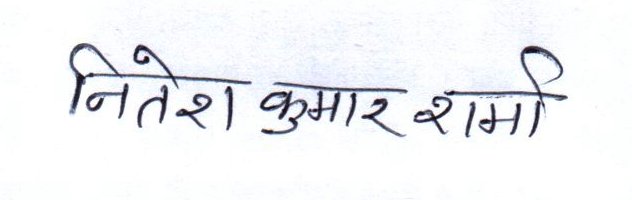 नितेश कुमार शर्मा